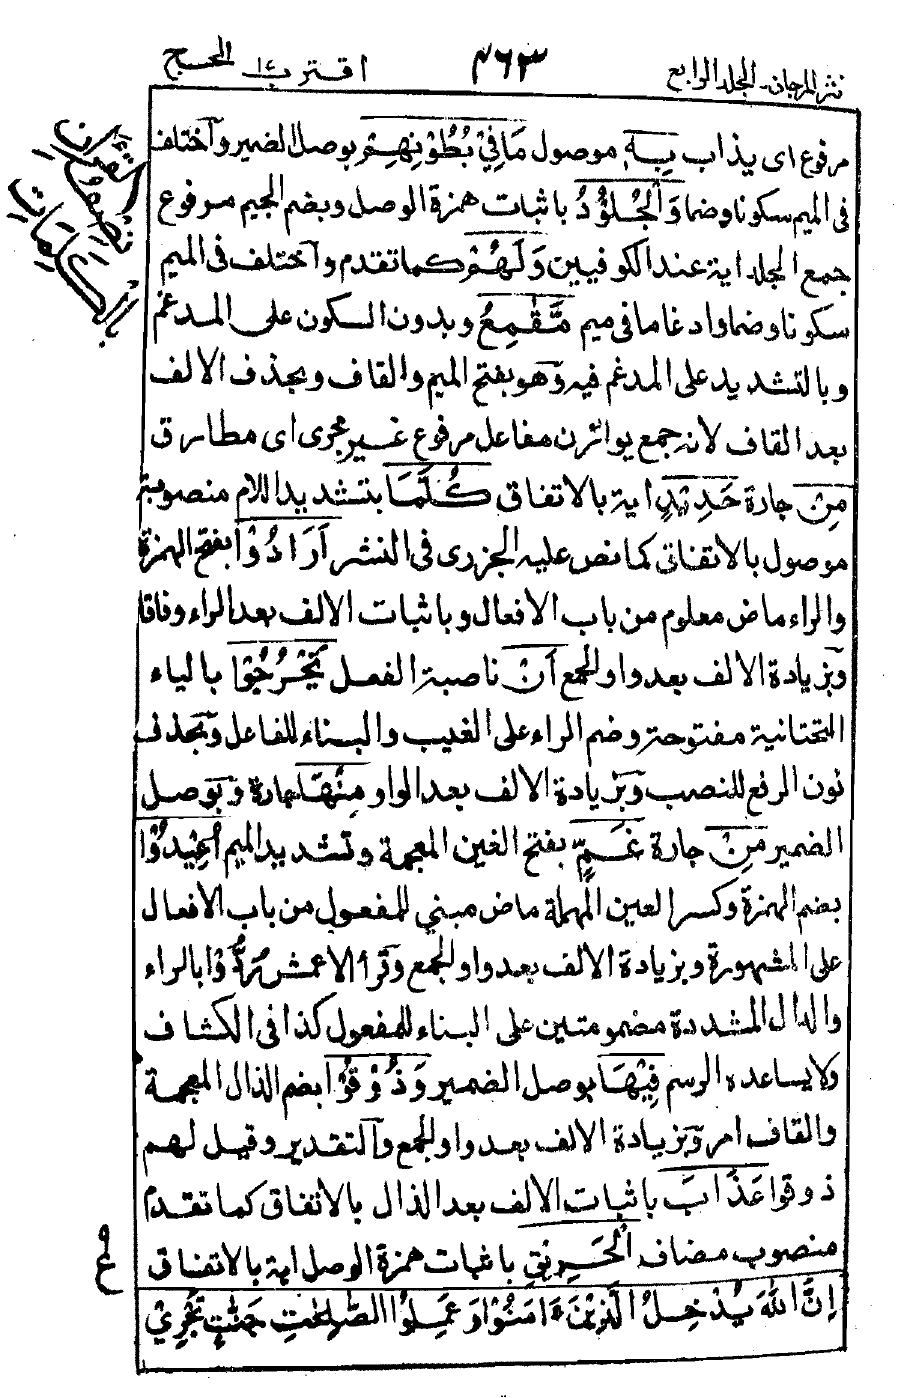 نثر المرجان - المجلد الرابع ٤٦٣ اقترب ١٧ الحج
مرفوع اى يذاب بِهٖ موصول مَا فِيْ بُطُوْنِهِمْ بوصل الضمير وآختلف
فى الميم سكونا وضما وَالْجُلُوْدُ باثبات همزة الوصل وبضم الجيم مرفوع
جمع الجلد اية عند الكوفيين وَلَهُمْ كما تقدم وآختلف فى الميم
سكونا وضما وادغاما فى ميم مَّقٰمِعُ وبدون السكون على المدغم
وبالتشديد على المدغم فيه وَهو بفتح الميم والقاف وبحذف الالف
بعد القاف لانه جمع يوازن مفاعل مرفوع غير مجرى اى مطارق
مِنْ جارة حَدِيْدٍ اية بالاتفاق كُلَّمَا بتشديد اللام منصوبة
موصول بالاتفاق كما نص عليه الجزرى فى النشر اَرَادُوْا بفتح الهمزة
والراء ماض معلوم من باب الافعال وباثبات الالف بعد الراء وفاقا
وَبزيادة الالف بعد واو الجمع اَنْ ناصبة الفعل يَّخْرُجُوْا بالياء
التحتانية مفتوحة وضم الراء على الغيب والبناء للفاعل وَبحذف
نون الرفع للنصب وَبزيادة الالف بعد الواو مِنْهَا جارة وَبوصل
الضمير مِنْ جارة غَمٍّ بفتح الغين المعجمة وتشديد الميم اُعِيْدُوْا
بضم الهمزة وكسر العين المهملة ماض مبني للمفعول من باب الافعال
على المشهورة وبزيادة الالف بعد واو الجمع وَقرأ الاعمش رُدُّوْا بالراء
والدال المشددة مضمومتين على البناء للمفعول كذا فى الكشاف
ولا يساعده الرسم فِيْهَا بوصل الضمير وَذُوْقُوْا بضم الذال المعجمة
والقاف امر وَبزيادة الالف بعد واو الجمع وَالتقدير وقيل لهم
ذوقوا عَذَابَ باثبات الالف بعد الذال بالاتفاق كما تقدم
منصوب مضاف الْحَرِيْقِ باثبات همزة الوصل اية بالاتفاق
ع
اِنَّ اللّٰهَ يُدْخِلُ الَّذِيْنَ ءَامَنُوْا وَعَمِلُوا الصّٰلِحٰتِ جَنّٰتٍ تَجْرِيْ